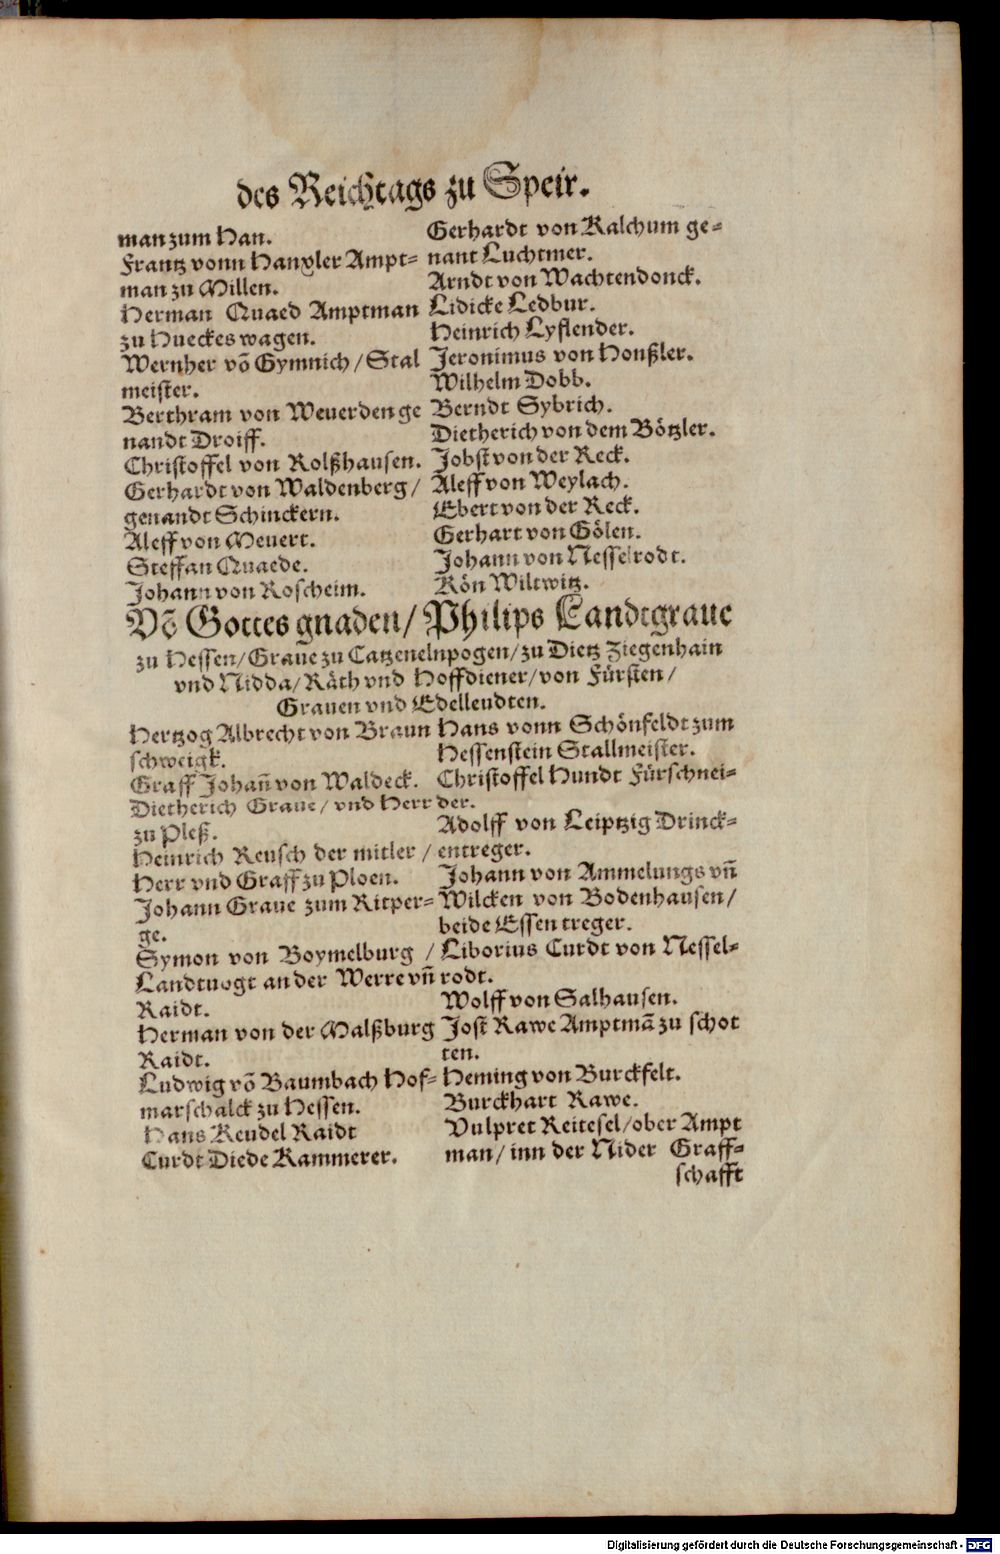 des Reichtags zu Speir.
man zum Han.
Frantz vonn Hanxler Ampt=
man zu Millen.
Herman Quaed Amptman
zu Hueckeswagen.
Wernher võ Gymnich / Stal
meister.
Berthram von Weuerden ge
nandt Droiff.
Christoffel von Rolßhausen.
Gerhardt von Waldenberg /
genandt Schinckern.
Aleff von Meuert.
Steffan Quaede.
Johann von Roscheim.
Gerhardt von Kalchum ge=
nant Luchtmer.
Arndt von Wachtendonck.
Lidicke Ledbur.
Heinrich Lyflender.
Jeronimus von Honßler.
Wilhelm Dobb.
Berndt Sybrich.
Dietherich von dem Bötzler.
Jobst von der Reck.
Aleff von Weylach.
Ebert von der Reck.
Gerhart von Gölen.
Johann von Nesselrodt.
Kön Wiltwitz.
Võ Gottes gnaden / Philips Landtgraue
zu Hessen / Graue zu Catzenelnpogen / zu Dietz Ziegenhain
vnd Nidda / Räth vnd Hoffdiener / von Fürsten /
Grauen vnd Edelleudten.
Hertzog Albrecht von Braun
schweigk.
Graff Johañ von Waldeck.
Dietherich Graue / vnd Herr
zu Pleß.
Heinrich Reusch der mitler /
Herr vnd Graff zu Ploen.
Johann Graue zum Ritper=
ge.
Symon von Boymelburg /
Landtuogt an der Werre vñ
Raidt.
Herman von der Malßburg
Raidt.
Ludwig võ Baumbach Hof=
marschalck zu Hessen.
Hans Keudel Raidt
Curdt Diede Kammerer.
Hans vonn Schönfeldt zum
Hessenstein Stallmeister.
Christoffel Hundt Fürschnei=
der.
Adolff von Leiptzig Drinck=
entreger.
Johann von Ammelungs vñ
Wilcken von Bodenhausen /
beide Essentreger.
Liborius Curdt von Nessel=
rodt.
Wolff von Salhausen.
Jost Rawe Amptmã zu schot
ten.
Heming von Burckfelt.
Burckhart Rawe.
Vulpret Reitesel / ober Ampt
man / inn der Nider Graff=
schafft
Digitalisierung gefördert durch die Deutsche Forschungsgemeinschaft - DFG